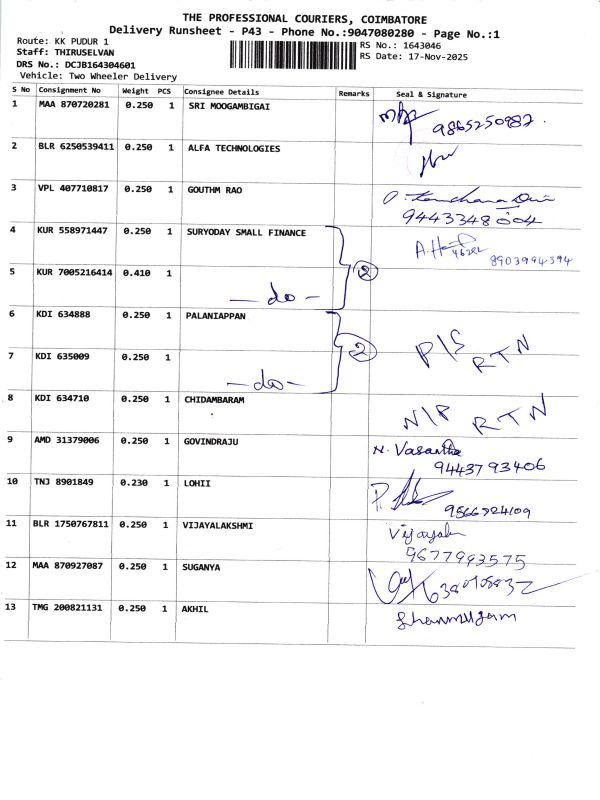 THE PROFESSIONAL COURIERS, COIMBATORE
Delivery Runsheet - P43 - Phone No.:9047080280 - Page No.:1
Route: KK PUDUR 1
Staff: THIRUSELVAN
DRS No.: DCJB164304601
Vehicle: Two Wheeler Delivery
RS No.: 1643046
RS Date: 17-Nov-2025
S No Consignment No Weight PCS Consignee Details Remarks Seal & Signature
1 MAA 870720281 0.250 1 SRI MOOGAMBIGAI
9865250982.
2 BLR 6250539411 0.250 1 ALFA TECHNOLOGIES
3 VPL 407710817 0.250 1 GOUTHM RAO
9443348504
4 KUR 558971447 0.250 1 SURYODAY SMALL FINANCE
8903994394
5 KUR 7005216414 0.410 1
— do — 2
6 KDI 634888 0.250 1 PALANIAPPAN
P/S RTN
7 KDI 635009 0.250 1
— do — 2
8 KDI 634710 0.250 1 CHIDAMBARAM
N/P RTN
9 AMD 31379006 0.250 1 GOVINDRAJU N. Vasantha
9443793406
10 TNJ 8901849 0.230 1 LOHII
9566724109
11 BLR 1750767811 0.250 1 VIJAYALAKSHMI Vijayala
9677993575
12 MAA 870927087 0.250 1 SUGANYA
13 TMG 200821131 0.250 1 AKHIL Shanmugam